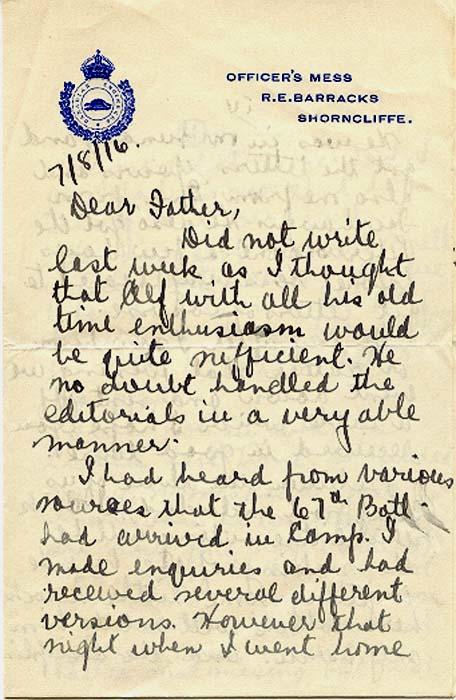 OFFICER'S MESS
R.E. BARRACKS
SHORNCLIFFE.
CANADIAN ENGINEERS
7/8/16.
Dear Father,
Did not write
last week as I thought
that Alf with all his old
time enthusiasm would
be quite sufficient. He
no doubt handled the
editorials in a very able
manner.
I had heard from various
sources that the 67th Batt.
had arrived in Camp. I
made enquiries and had
received several different
versions. However that
night when I went home